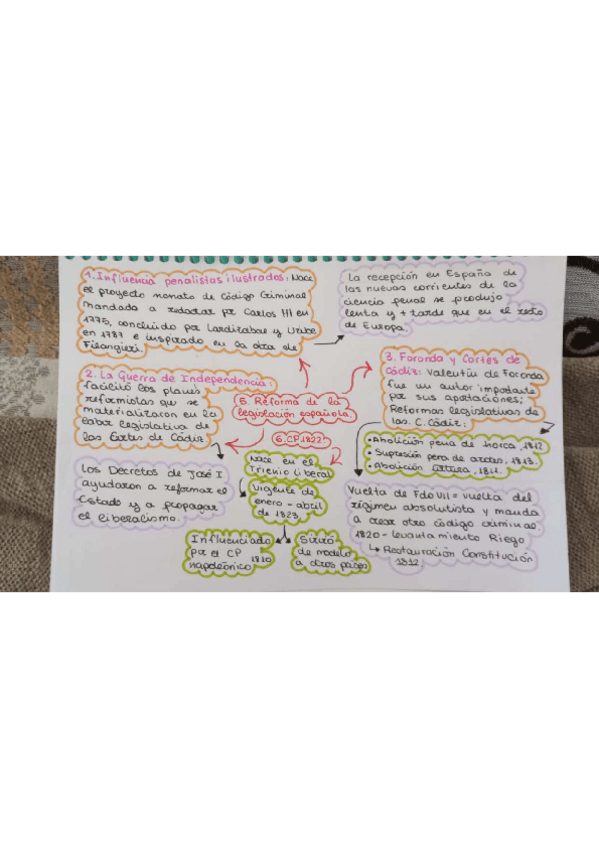 1. Influencia penalistas ilustrados: Nace
el proyecto nonato de Código Criminal
mandado a redactar por Carlos III en
1775, concluido por Lardizabal y Uribe
en 1787 e inspirado en la obra de
Filangieri.
La recepción en España de
las nuevas corrientes de la
ciencia penal se produjo
lenta y + tarde que en el resto
de Europa.
2. La Guerra de Independencia:
facilitó los planes
reformistas que se
materializaron en la
labor legislativa de
las Cortes de Cádiz.
5. Reforma de la
legislación española.
3. Foronda y Cortes de
Cádiz: Valentín de Foronda
fue un autor importante
por sus aportaciones;
Reformas legislativas de
las C. Cádiz:
• Abolición pena de horca, 1812
• Supresión pena de azotes, 1813.
• Abolición tortura, 1811.
Los Decretos de José I
ayudaron a reformar el
Estado y a propagar
el liberalismo.
6. CP 1822
Nace en el
Trienio Liberal
Vigente de
enero - abril
de 1823
Influenciado
por el CP
napoleónico 1810
Sirvió
de modelo
a otros países
Vuelta de Fdo VII = vuelta del
régimen absolutista y manda
a crear otro código criminal
1820 - levantamiento Riego
↳ Restauración Constitución
1812.